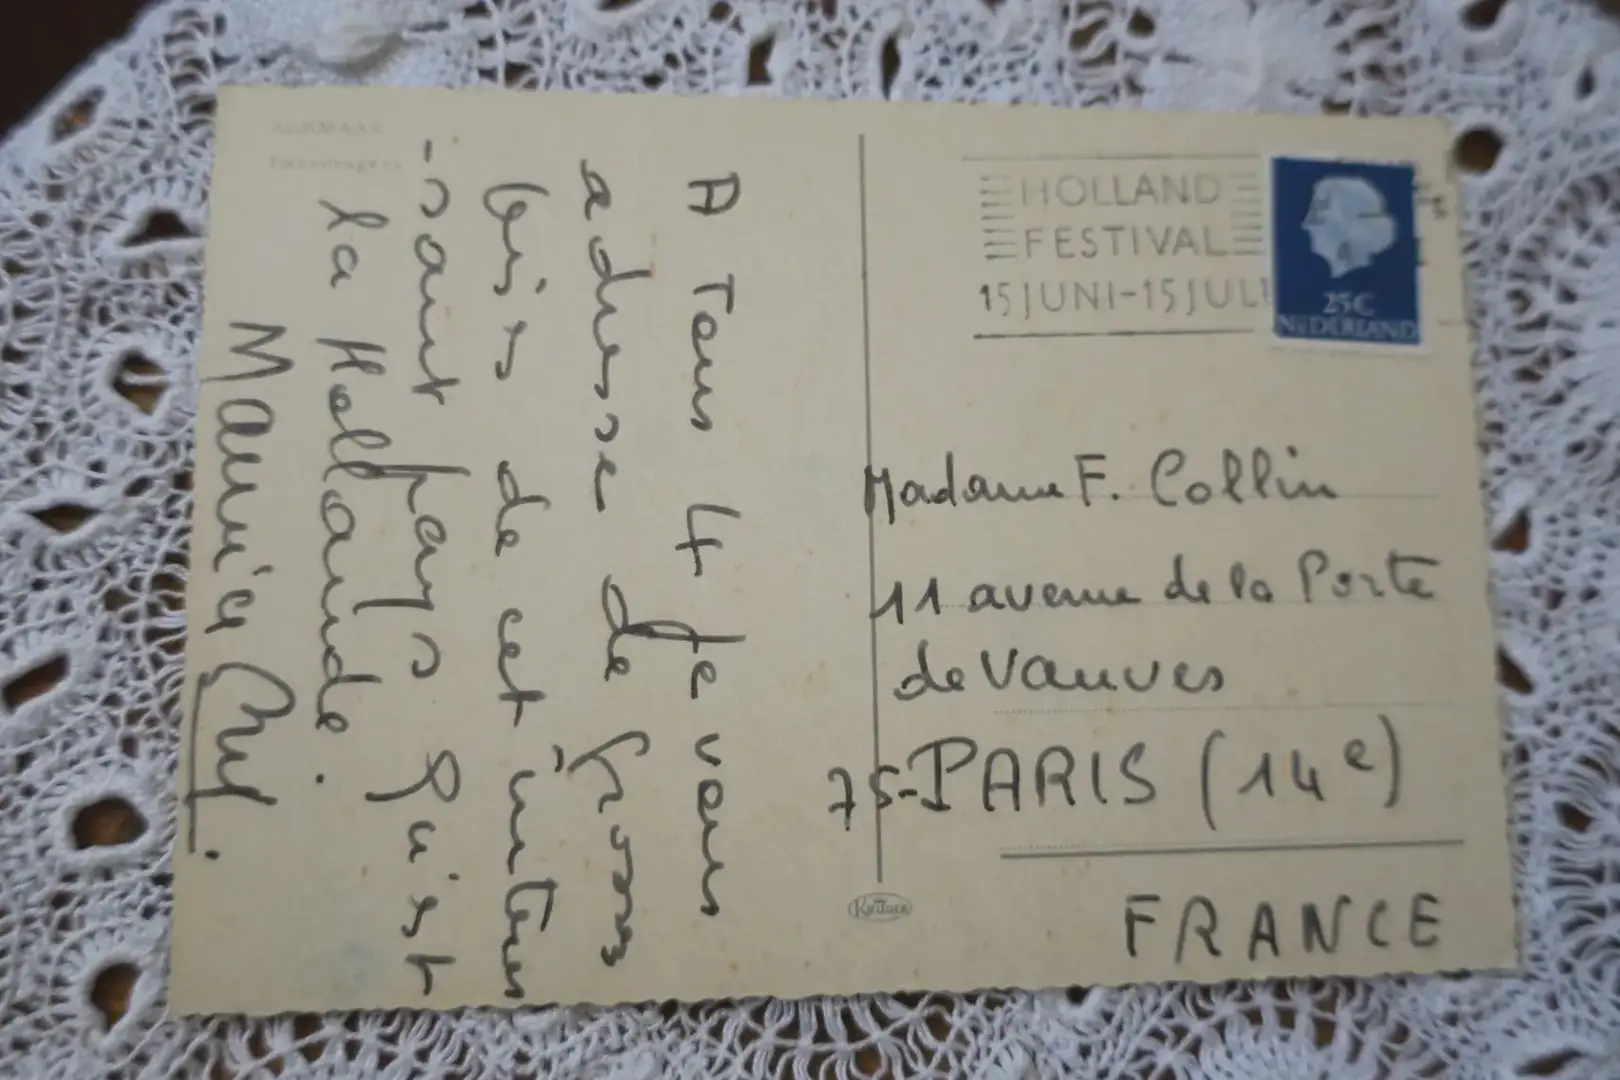 ALKMAAR
Kaasdragers
A Tous 4 je vous
adresse de gross
bises de cet intéres
-sant pays qu'est
la Hollande.
Maurice
HOLLAND
FESTIVAL
15 JUNI-15 JULI
25C
NEDERLAND
Madame F. Collin
11 avenue de la Porte
de Vanves
75-PARIS (14e)
FRANCE
KRÜGER